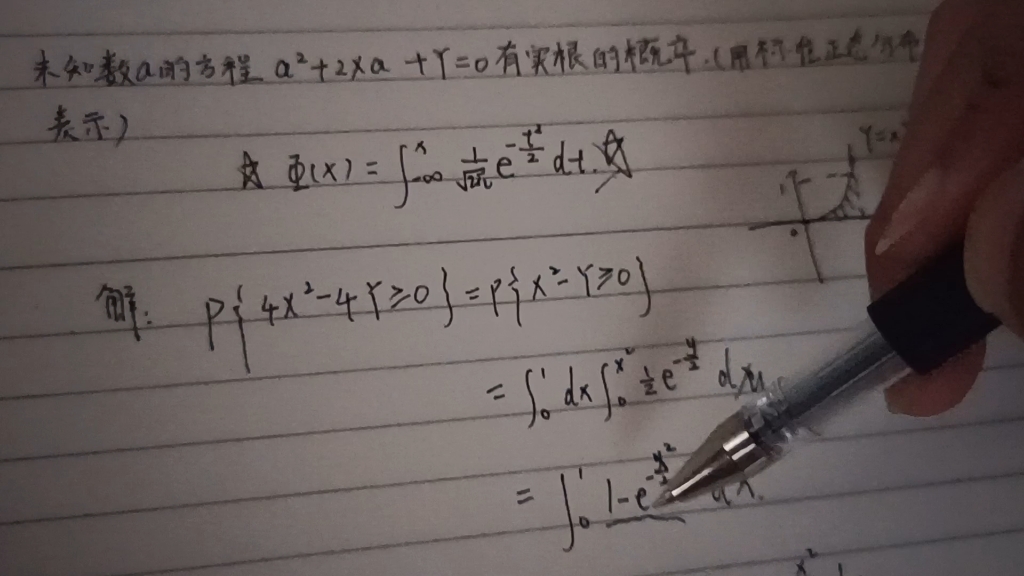 未知数a的方程 a²+2Xa+Y=0有实根的概率.(用标准正态分布
表示)
☆ Φ(x) = ∫_{-∞}^{x} \frac{1}{\sqrt{2π}} e^{-\frac{t²}{2}} dt. ☆
Y=x
1
0
解: P{4X²-4Y≥0} = P{X²-Y≥0}
= ∫_0^1 dx ∫_0^{x²} \frac{1}{2} e^{-\frac{y}{2}} dy
= ∫_0^1 1-e^{-\frac{x²}{2}} dx.
x²